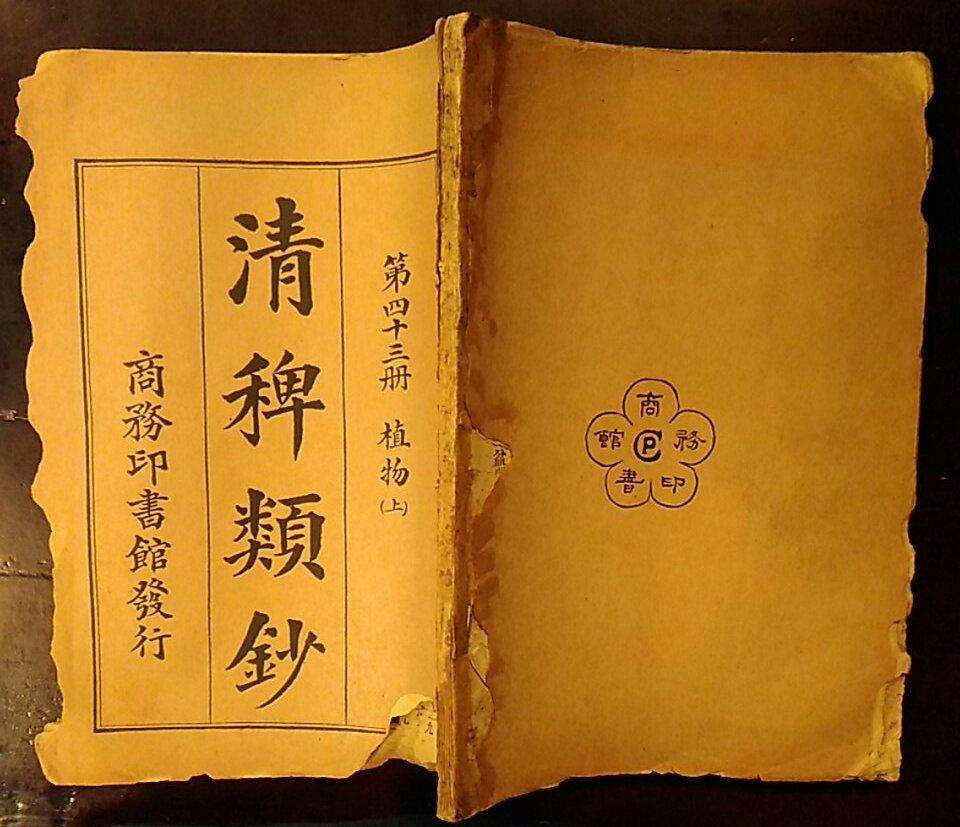 第四十三册 植物(上)
清稗類鈔
商務印書館發行
商務印書館
CP